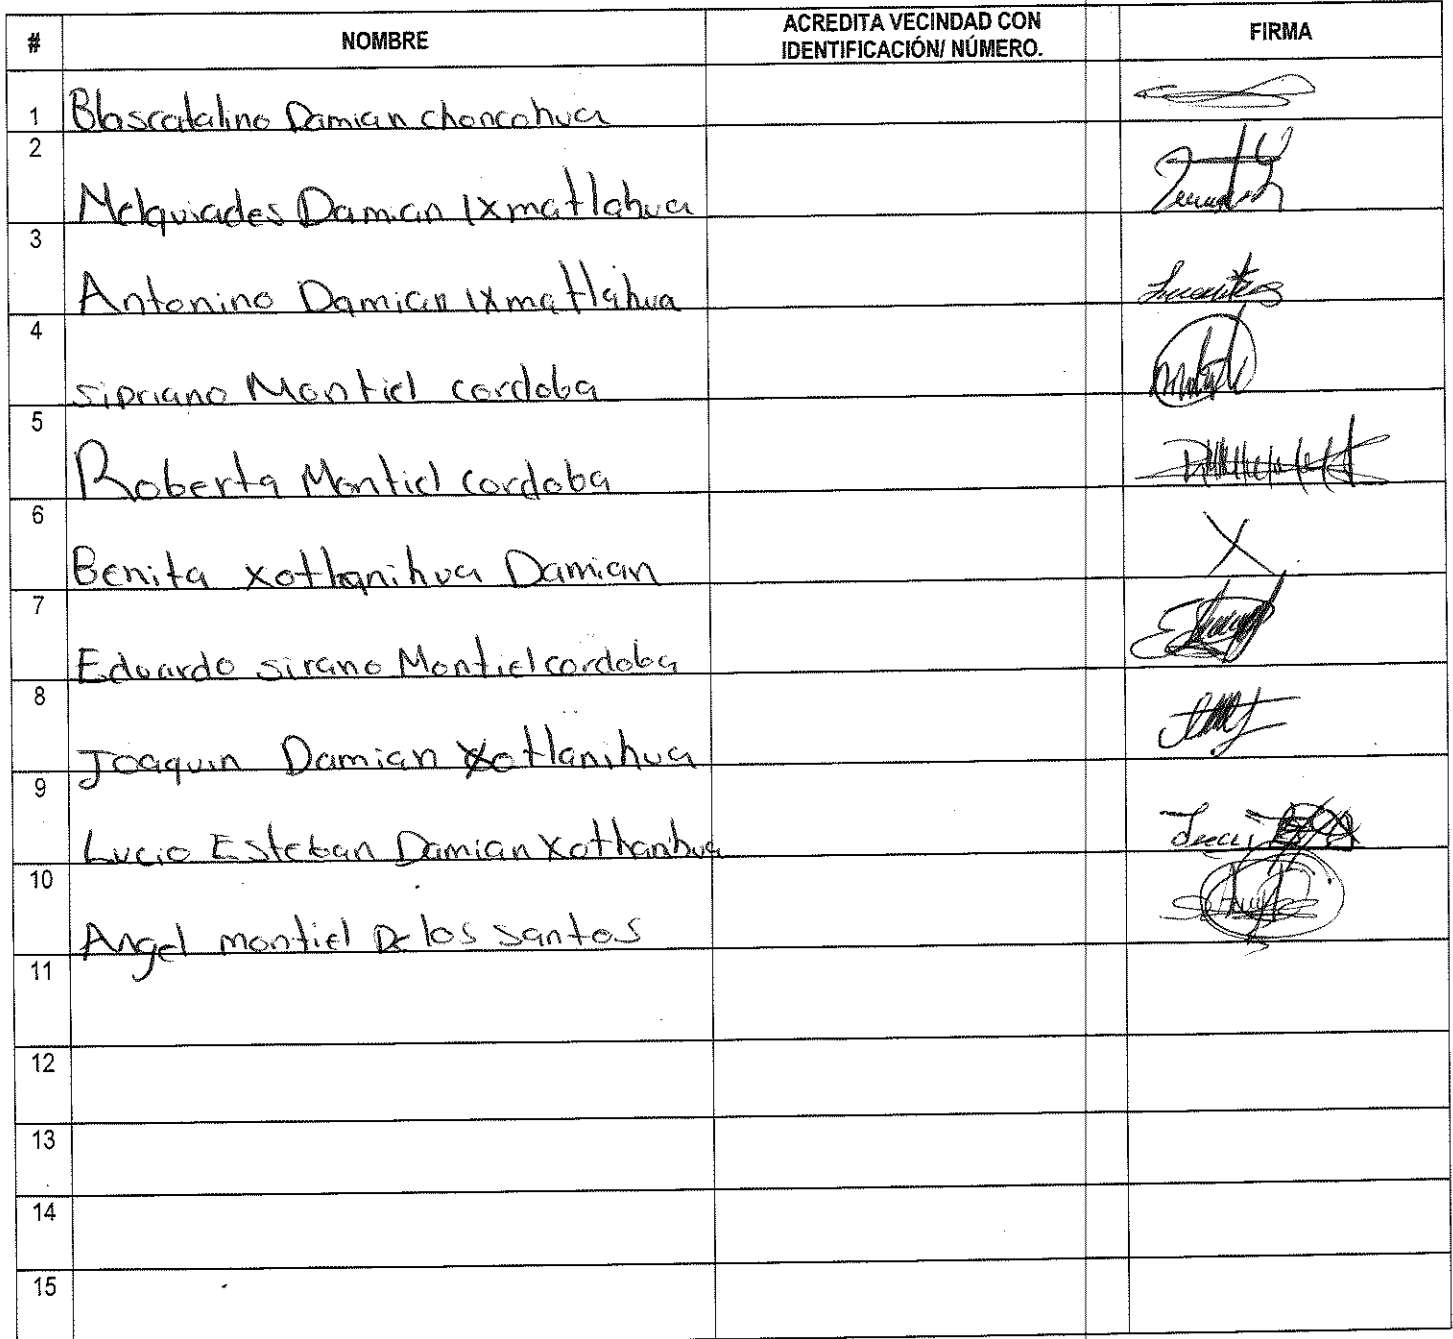 # NOMBRE ACREDITA VECINDAD CON IDENTIFICACIÓN/ NÚMERO. FIRMA
1 Blascatalino Damian choncohua
2 Melquiades Damian Ixmatlahua
3 Antonino Damian Ixmatlahua
4 sipriano Montiel cordoba
5 Roberta Montiel cordoba
6 Benita xotlanihua Damian X
7 Eduardo sirano Montiel cordoba
8 Joaquin Damian Xotlanihua
9 Lucio Esteban Damian Xotlanihua
10 Angel montiel De los santos
11
12
13
14
15